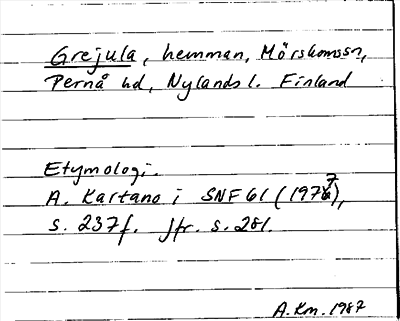 Grejula, hemman, Mörskomssn,
Pernå hd, Nylands l. Finland
Etymologi.
A. Kartano i SNF 61 (1977),
s. 237f. Jfr. s. 281.
A. Km. 1987